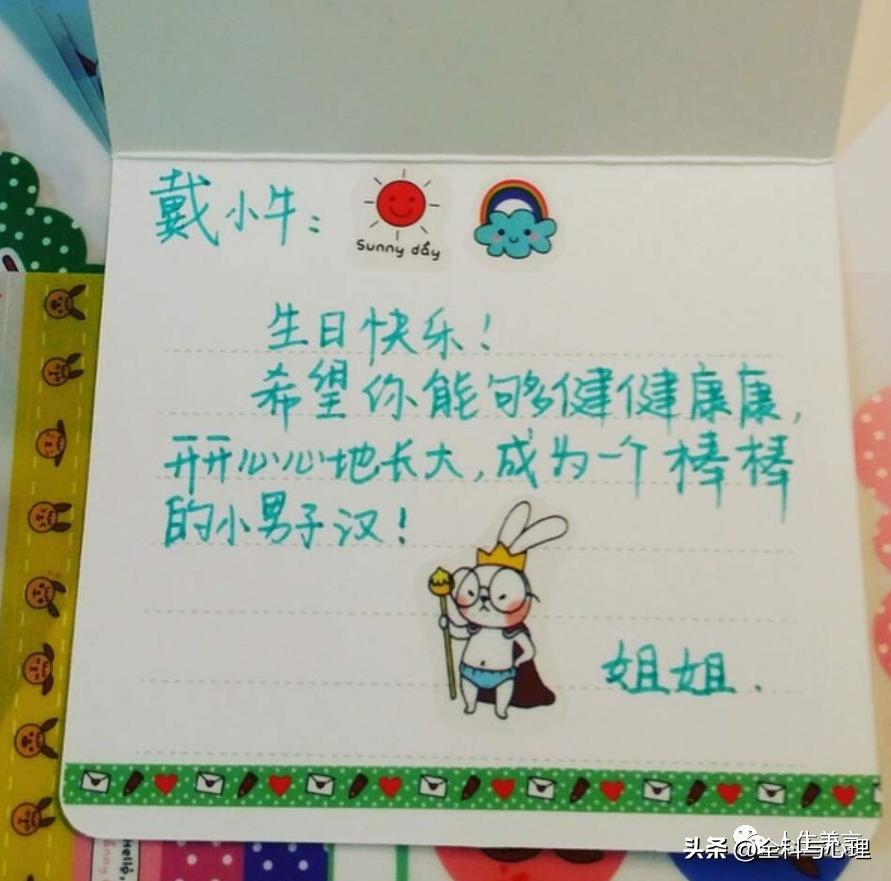 戴小牛：
Sunny day
生日快乐！
希望你能够健健康康，
开开心心地长大，成为一个棒棒
的小男子汉！
姐姐．
Hello,
头条 @全科与心理